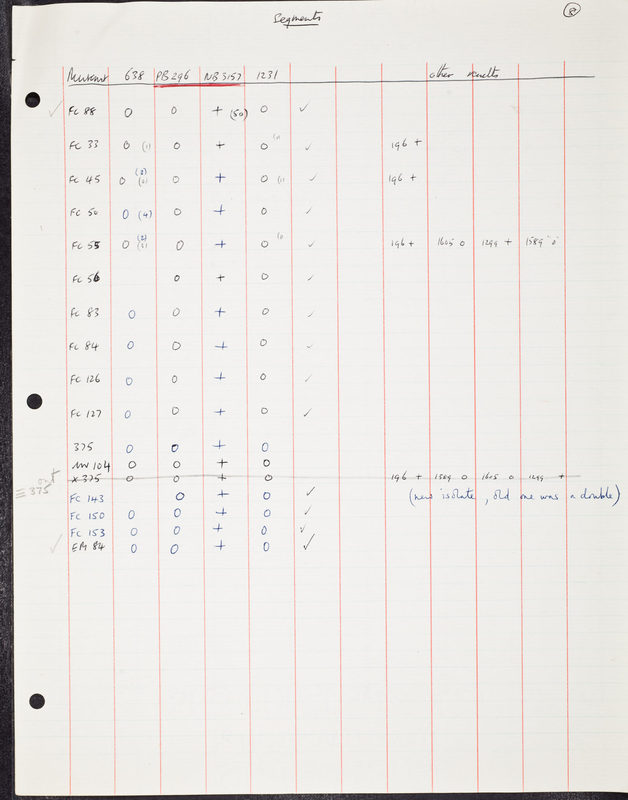 8
Segments
Mutant 638 PB296 NB3157 1231 other results
✓ FC 88 0 0 + (50) 0 ✓
FC 33 0 (1) 0 + 0 (1) ✓ 196 +
FC 45 0 (2) 0 + 0 (1) ✓ 196 +
FC 50 0 (4) 0 + 0 ✓
FC 55 0 (2) 0 + 0 ✓ 196 + 1605 0 1299 + 1589 0
FC 56 0 + 0 ✓
FC 83 0 0 + 0 ✓
FC 84 0 0 + 0 ✓
FC 126 0 0 + 0 ✓
FC 127 0 0 + 0 ✓
375 0 0 + 0
104 0 0 + 0
X 375 0 0 + 0 196 + 1589 0 1605 0 1299 +
≡ 375
FC 143 0 + 0 ✓ (new isolate, old one was a double)
FC 150 0 0 + 0 ✓
FC 153 0 0 + 0 ✓
✓ EM 84 0 0 + 0 ✓